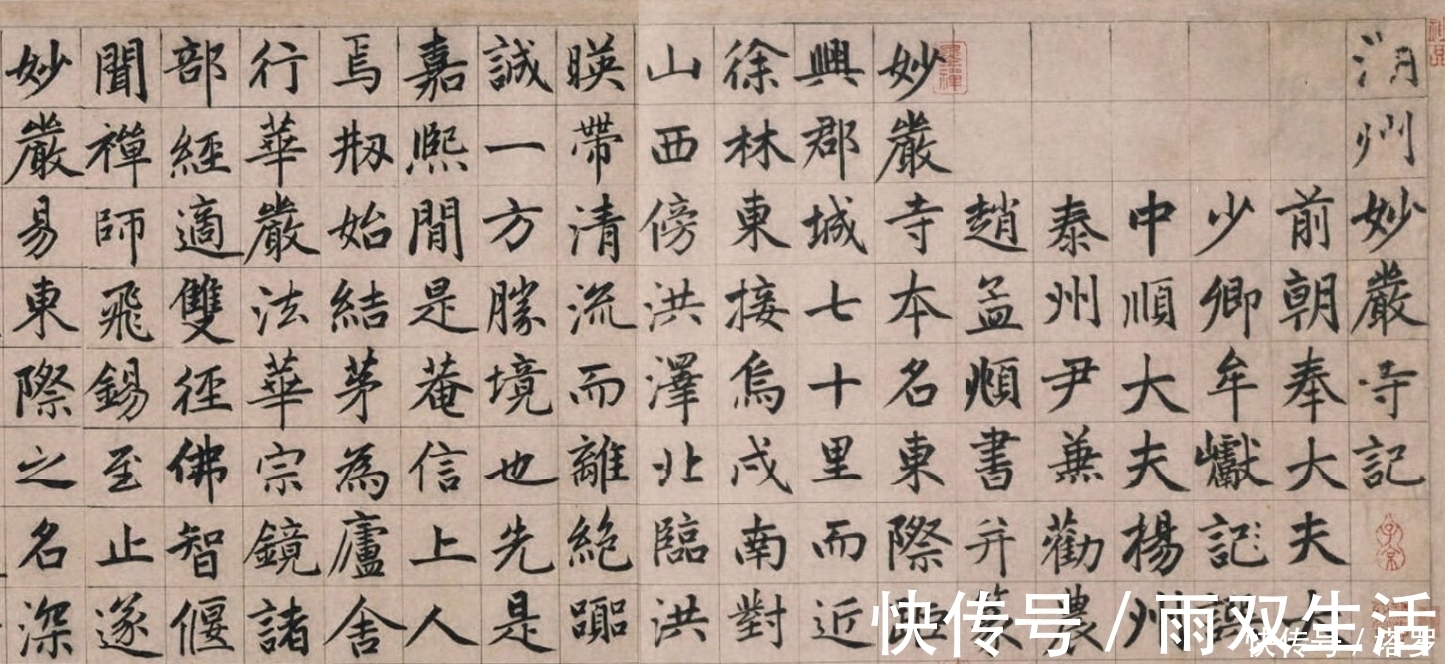 湖州妙嚴寺記
前朝奉大夫大
少卿牟巘記
中順大夫楊州
泰州尹兼勸農
趙孟頫書并
妙嚴寺本名東際
興郡城七十里而近
徐林東接烏戍南對
山西傍洪澤北臨洪
暎帶清流而離絶囂
誠一方勝境也先是
嘉熙間是菴信上人
焉剏始結茅為廬舍
行華嚴法華宗鏡諸
部經適雙徑佛智偃
聞禪師飛錫至止遂
妙嚴易東際之名深
快传号 / 雨双生活
快传号 /